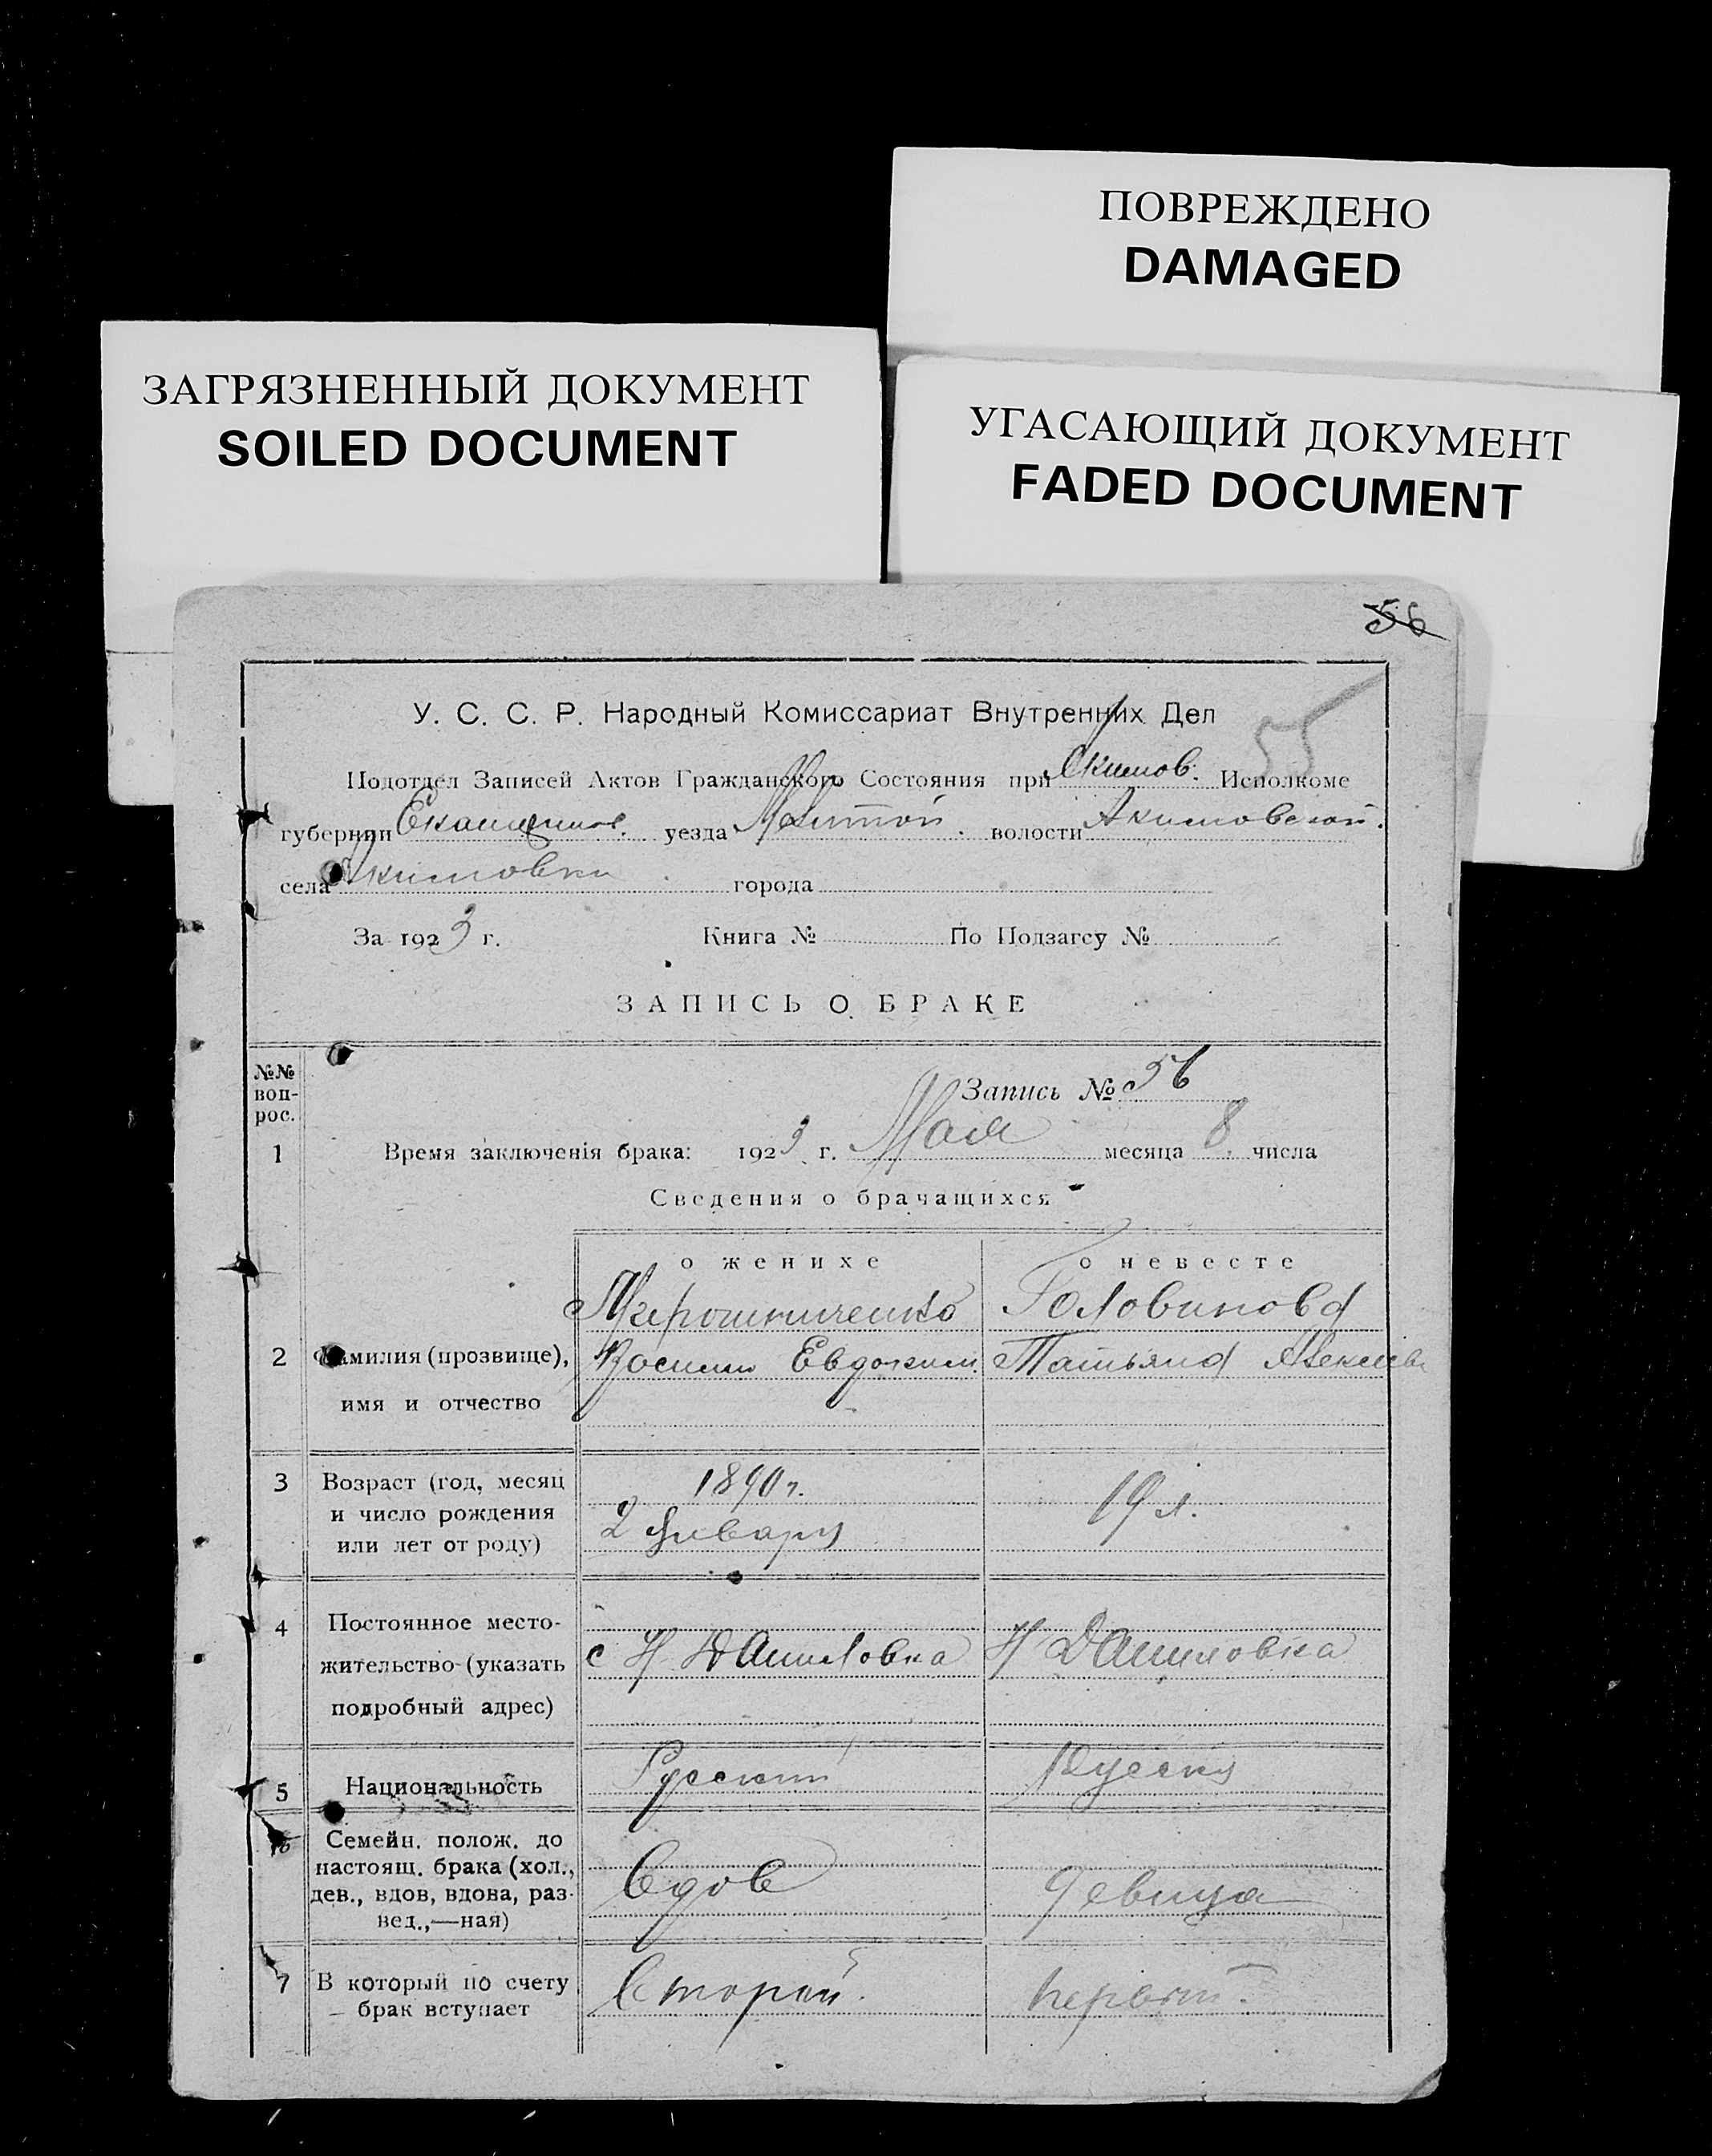 ПОВРЕЖДЕНО
DAMAGED
ЗАГРЯЗНЕННЫЙ ДОКУМЕНТ
SOILED DOCUMENT
УГАСАЮЩИЙ ДОКУМЕНТ
FADED DOCUMENT
56
55
У. С. С. Р. Народный Комиссариат Внутренних Дел
Подотдел Записей Актов Гражданского Состояния при Акимов. Исполкоме
губернии уезда Мелитой. волости Акимовской.
села Акимовки города
За 1923 г. Книга № По Подзагсу №
ЗАПИСЬ О БРАКЕ
№№ воп-рос.
Запись № 56
1 Время заключенія брака: 1923 г. Мая месяца 8 числа
Сведения о брачащихся
о женихе о невесте
Мирошниченко Головинова
2 Фамилия (прозвище), Евдоким. Татьяна Алексеев
имя и отчество
3 Возраст (год, месяц 1890 г. 19 л.
и число рождения 2 Января
или лет от роду)
4 Постоянное место-
жительство (указать с Н Даниловка Н Даниловка
подробный адрес)
5 Национальность Русский Руская
6 Семейн. полож. до
настоящ. брака (хол., Вдов девица
дев., вдов, вдова, раз-
вед.,—ная)
7 В который по счету Второй. первый.
брак вступает